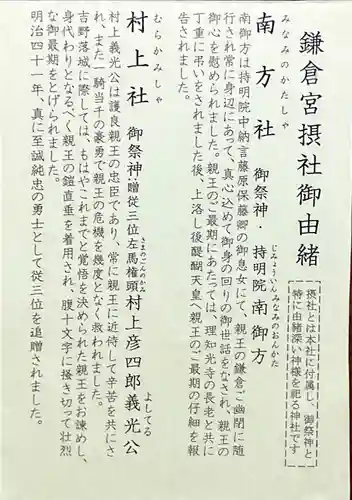 鎌倉宮摂社御由緒
摂社とは本社に付属し、御祭神と
特に由緒深い神様を祀る神社です
みなみのかたしゃ
南方社 御祭神・持明院南御方
じみょういんみなみのおんかた
南御方は持明院中納言藤原保藤卿の御息女にて、親王の鎌倉ご幽閉に随
行され常に身辺にあって、真心込めて御身の回りの御世話をなされ、親王の
御心を慰められました。親王のご最期にあたっては、理知光寺の長老と共に
丁重に弔いをされました後、上洛し後醍醐天皇へ親王のご最期の仔細を報
告されました。
むらかみしゃ
村上社 御祭神・贈従三位左馬権頭村上彦四郎義光公
さまのごんのかみ
よしてる
村上義光公は護良親王の忠臣であり、常に親王に近侍して辛苦を共にさ
れ、また一騎当千の豪勇で親王の危機を幾度となく救われました。
吉野落城に際しては、もはやこれまでと覚悟を決められた親王をお諫めし、
身代わりとなるべく親王の鎧直垂を着用され、腹十文字に掻き切って壮烈
な御最期をとげられました。
明治四十一年、真に至誠純忠の勇士として従三位を追贈されます。